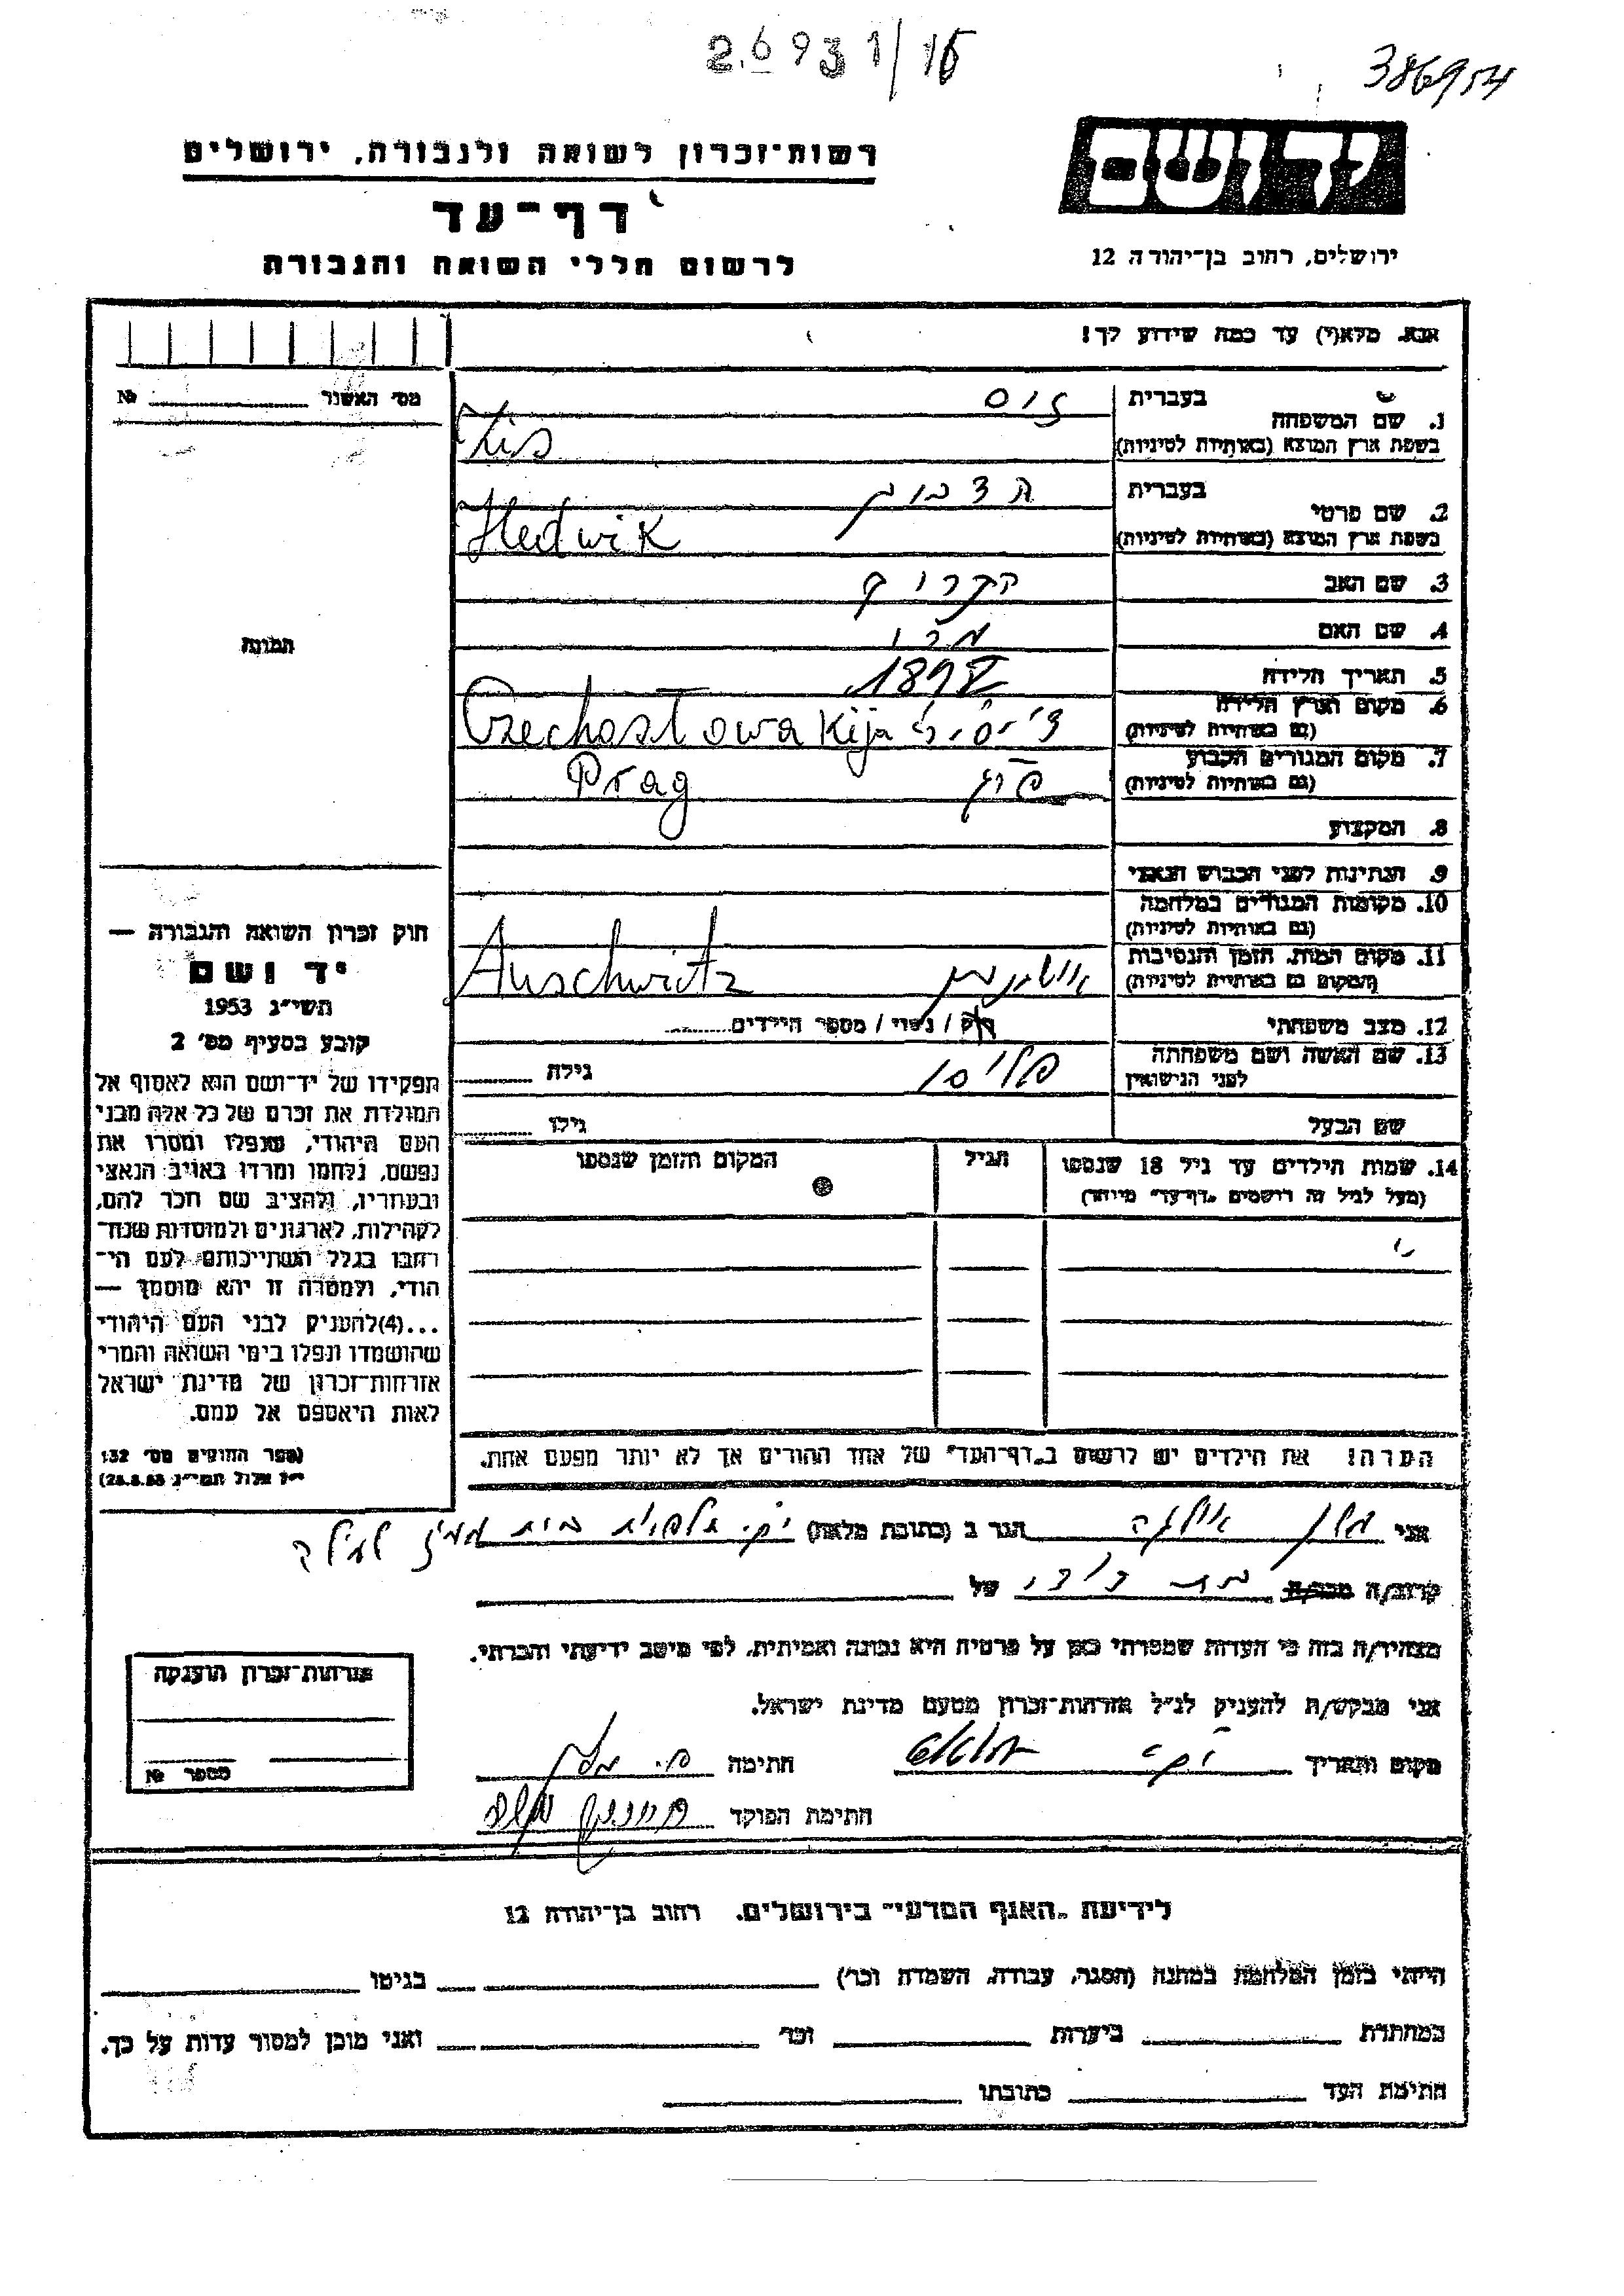 26931/16
386954
יד ושם
רשות־זכרון לשואה ולגבורה, ירושלים
דף־עד
לרשום חללי השואה והגבורה
ירושלים, רחוב בן־יהודה 12
אנא, מלא(י) עד כמה שידוע לך!
מס׳ האשור № 
1. שם המשפחה
בעברית זיס
בשפת ארץ המוצא (באותיות לטיניות) Zis
2. שם פרטי
בעברית
בשפת ארץ המוצא (באותיות לטיניות) Hedwik
3. שם האב
4. שם האם
5. תאריך הלידה 1898
6. מקום וארץ הלידה
(גם באותיות לטיניות) Czechostowakija
7. מקום המגורים הקבוע
(גם באותיות לטיניות) פרג Prag
8. המקצוע
9. הנתינות לפני הכבוש הנאצי
10. מקומות המגורים במלחמה
(גם באותיות לטיניות)
11. מקום המות, הזמן והנסיבות
(המקום גם באותיות לטיניות) אושויץ Auschwitz
12. מצב משפחתי רוק / נשוי / מספר הילדים
13. שם האשה ושם משפחתה
לפני הנישואין גילה
שם הבעל גילו
14. שמות הילדים עד גיל 18 שנספו
(מעל לגיל זה רושמים "דף־עד" מיוחד)
הגיל
המקום והזמן שנספו
הערה! את הילדים יש לרשום ב"דף־העד" של אחד ההורים אך לא יותר מפעם אחת.
התמונה
חוק זכרון השואה והגבורה —
יד ושם
תשי״ג 1953
קובע בסעיף מס׳ 2
תפקידו של יד־ושם הוא לאסוף אל
המולדת את זכרם של כל אלה מבני
העם היהודי, שנפלו ומסרו את
נפשם, נלחמו ומרדו באויב הנאצי
ובעוזריו, ולהציב שם וזכר להם,
לקהילות, לארגונים ולמוסדות שנח־
רבו בגלל השתייכותם לעם הי־
הודי, ולמטרה זו יהא מוסמך —
...(4)להעניק לבני העם היהודי
שהושמדו ונפלו בימי השואה והמרי
אזרחות־זכרון של מדינת ישראל
לאות היאספם אל עמם.
(ספר החוקים מס׳ 132
י״ז אלול תשי״ג 28.8.53)
אני הגר ב (כתובת מלאה)
קרוב/ה מכר/ה של
מצהיר/ה בזה כי העדות שמסרתי כאן על פרטיה היא נכונה ואמיתית, לפי מיטב ידיעתי והכרתי.
אני מבקש/ת להעניק לנ״ל אזרחות־זכרון מטעם מדינת ישראל.
מקום ותאריך חתימה
חתימת הפוקד
אזרחות־זכרון הוענקה
מספר №
לידיעת "האגף המדעי" בירושלים, רחוב בן־יהודה 12
הייתי בזמן המלחמה במחנה (הסגר, עבודה, השמדה וכו׳) בגיטו
במחתרת ביערות וכו׳ ואני מוכן למסור עדות על כך.
חתימת העד כתובתו